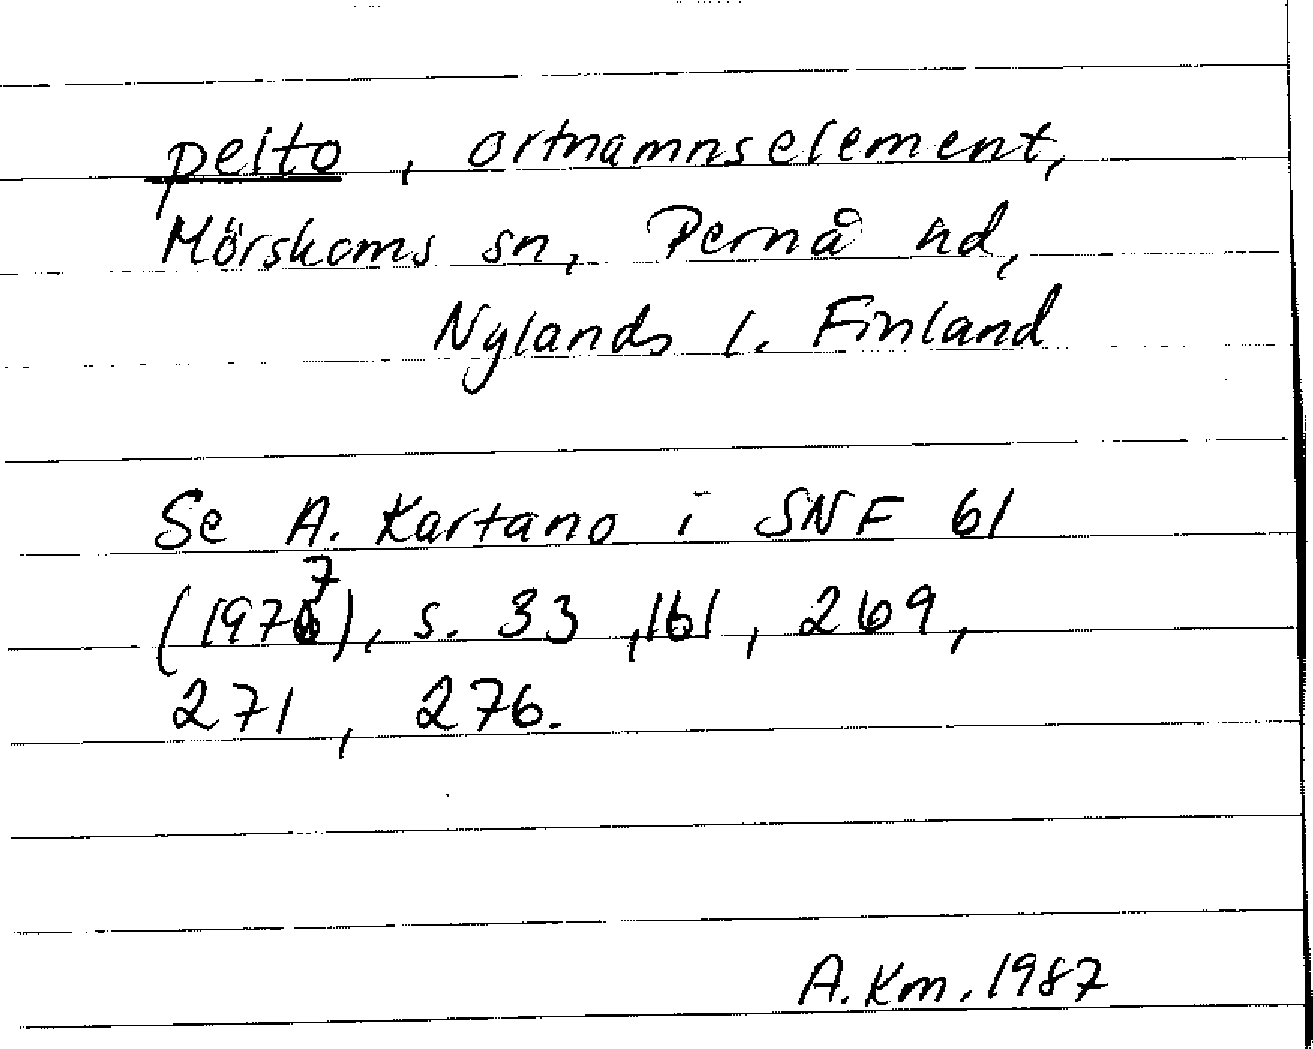 pelto, ortnamnselement,
Mörskoms sn, Pernå hd,
Nylands l. Finland
Se A. Kartano i SNF 61
(1977), s. 33, 161, 269,
271, 276.
A.Km. 1987